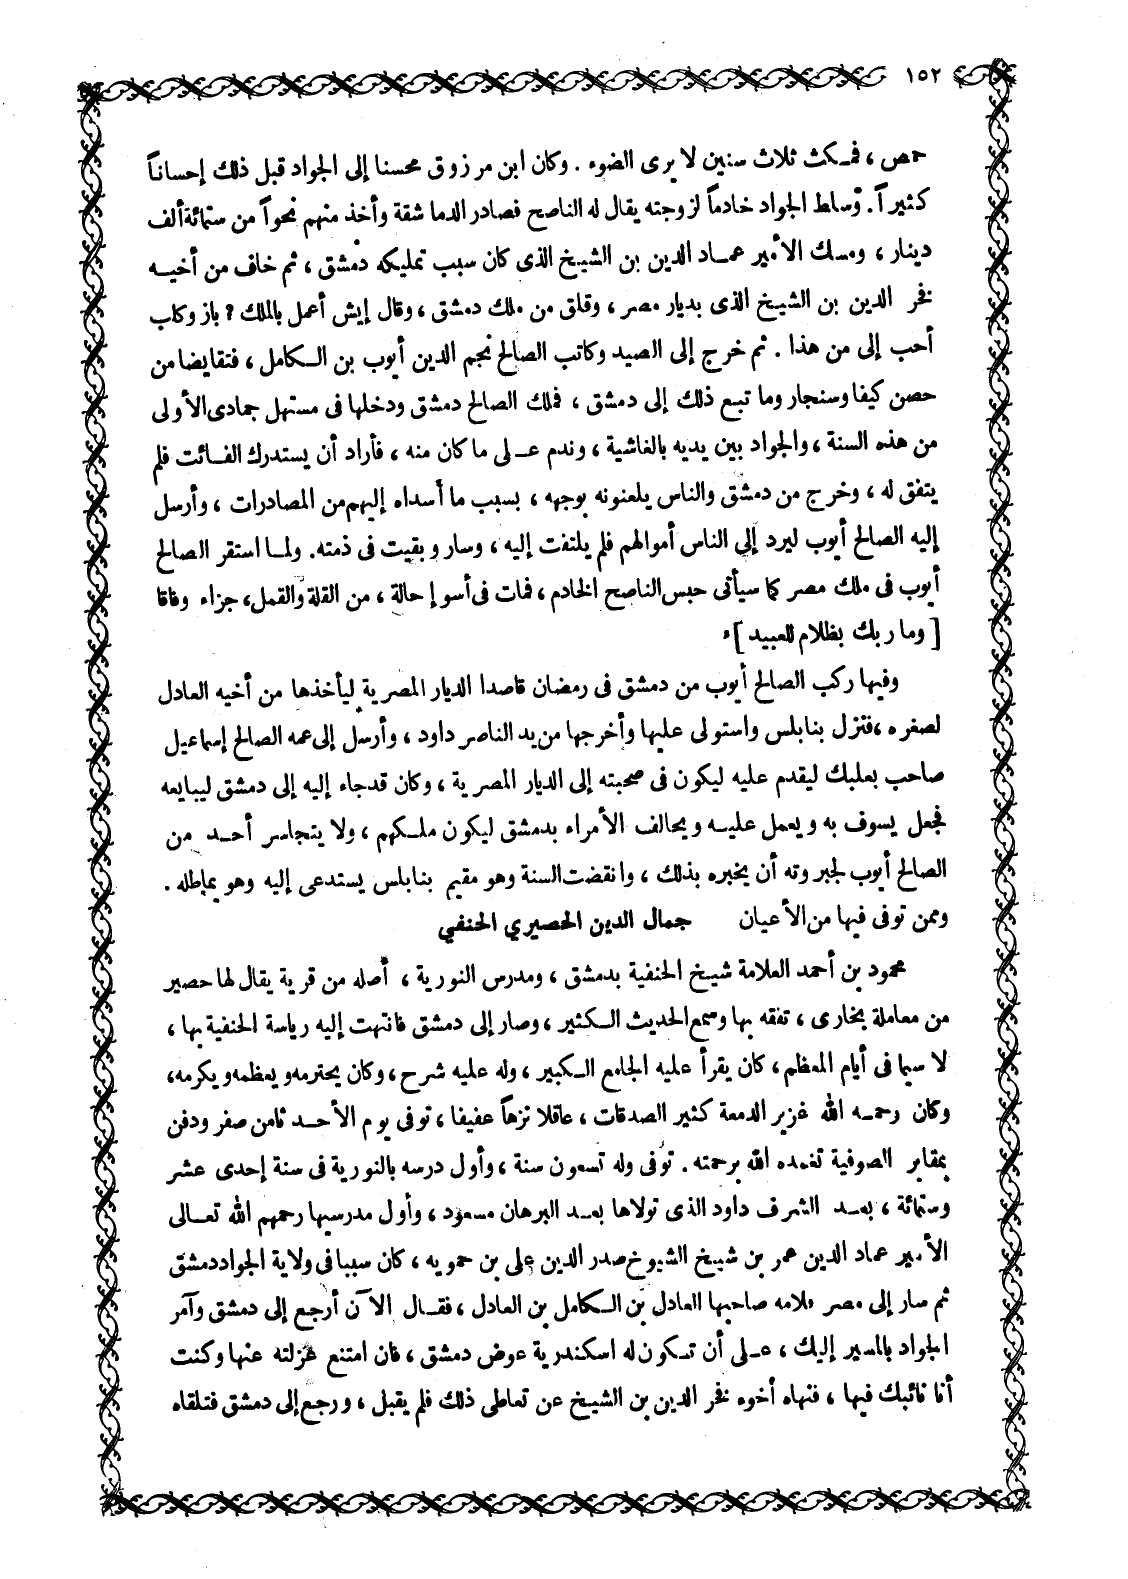 ١٥٢
حمص ، فمكث ثلاث سنين لا يرى الضوء . وكان ابن مرزوق محسنا إلى الجواد قبل ذلك إحساناً
كثيراً . وسلط الجواد خادماً لزوجته يقال له الناصح فصادر الدماشقة وأخذ منهم نحواً من ستمائة ألف
دينار ، ومسك الأمير عماد الدين بن الشيخ الذى كان سبب تمليكه دمشق ، ثم خاف من أخيه
فخر الدين بن الشيخ الذى بديار مصر ، وقلق من ملك دمشق ، وقال إيش أعمل بالملك ? باز وكاب
أحب إلى من هذا . ثم خرج إلى الصيد وكاتب الصالح نجم الدين أيوب بن الكامل ، فتقايضا من
حصن كيفا وسنجار وما تبع ذلك إلى دمشق ، فملك الصالح دمشق ودخلها فى مستهل جمادى الأولى
من هذه السنة ، والجواد بين يديه بالغاشية ، وندم على ما كان منه ، فأراد أن يستدرك الفائت فلم
يتفق له ، وخرج من دمشق والناس يلعنونه بوجهه ، بسبب ما أسداه إليهم من المصادرات ، وأرسل
إليه الصالح أيوب ليرد إلى الناس أموالهم فلم يلتفت إليه ، وسار وبقيت فى ذمته. ولما استقر الصالح
أيوب فى ملك مصر كما سيأتى حبس الناصح الخادم ، فمات فى أسوإ حالة ، من القلة والقمل، جزاء وفاقا
[ وما ربك بظلام للعبيد ]ء
وفيها ركب الصالح أيوب من دمشق فى رمضان قاصدا الديار المصرية ليأخذها من أخيه العادل
لصغره ، فنزل بنابلس واستولى عليها وأخرجها من يد الناصر داود ، وأرسل إلى عمه الصالح إسماعيل
صاحب بعلبك ليقدم عليه ليكون فى صحبته إلى الديار المصرية ، وكان قد جاء إليه إلى دمشق ليبايعه
فجعل يسوف به ويعمل عليه ويحالف الأمراء بدمشق ليكون ملكهم ، ولا يتجاسر أحد من
الصالح أيوب لجبروته أن يخبره بذلك ، وانقضت السنة وهو مقيم بنابلس يستدعى إليه وهو يماطله .
وممن توفى فيها من الأعيان جمال الدين الحصيري الحنفي
محمود بن أحمد العلامة شيخ الحنفية بدمشق ، ومدرس النورية ، أصله من قرية يقال لها حصير
من معاملة بخارى ، تفقه بها وسمع الحديث الكثير ، وصار إلى دمشق فانتهت إليه رياسة الحنفية بها ،
لا سيما فى أيام المعظم ، كان يقرأ عليه الجامع الكبير ، وله عليه شرح ، وكان يحترمه ويعظمه ويكرمه ،
وكان رحمه الله غزير الدمعة كثير الصدقات ، عاقلا نزهاً عفيفا ، توفى يوم الأحد ثامن صفر ودفن
بمقابر الصوفية تغمده الله برحمته . توفى وله تسعون سنة ، وأول درسه بالنورية فى سنة إحدى عشر
وستمائة ، بعد الشرف داود الذى تولاها بعد البرهان مسعود ، وأول مدرسيها رحمهم الله تعالى
الأمير عماد الدين عمر بن شيخ الشيوخ صدر الدين على بن حمويه ، كان سببا فى ولاية الجواد دمشق
ثم سار إلى مصر فلامه صاحبها العادل بن الكامل بن العادل ، فقال الآن أرجع إلى دمشق وآمر
الجواد بالمسير إليك ، على أن تكون له اسكندرية عوض دمشق ، فان امتنع عزلته عنها وكنت
أنا نائبك فيها ، فنهاه أخوه فخر الدين بن الشيخ عن تعاطى ذلك فلم يقبل ، ورجع إلى دمشق فتلقاه